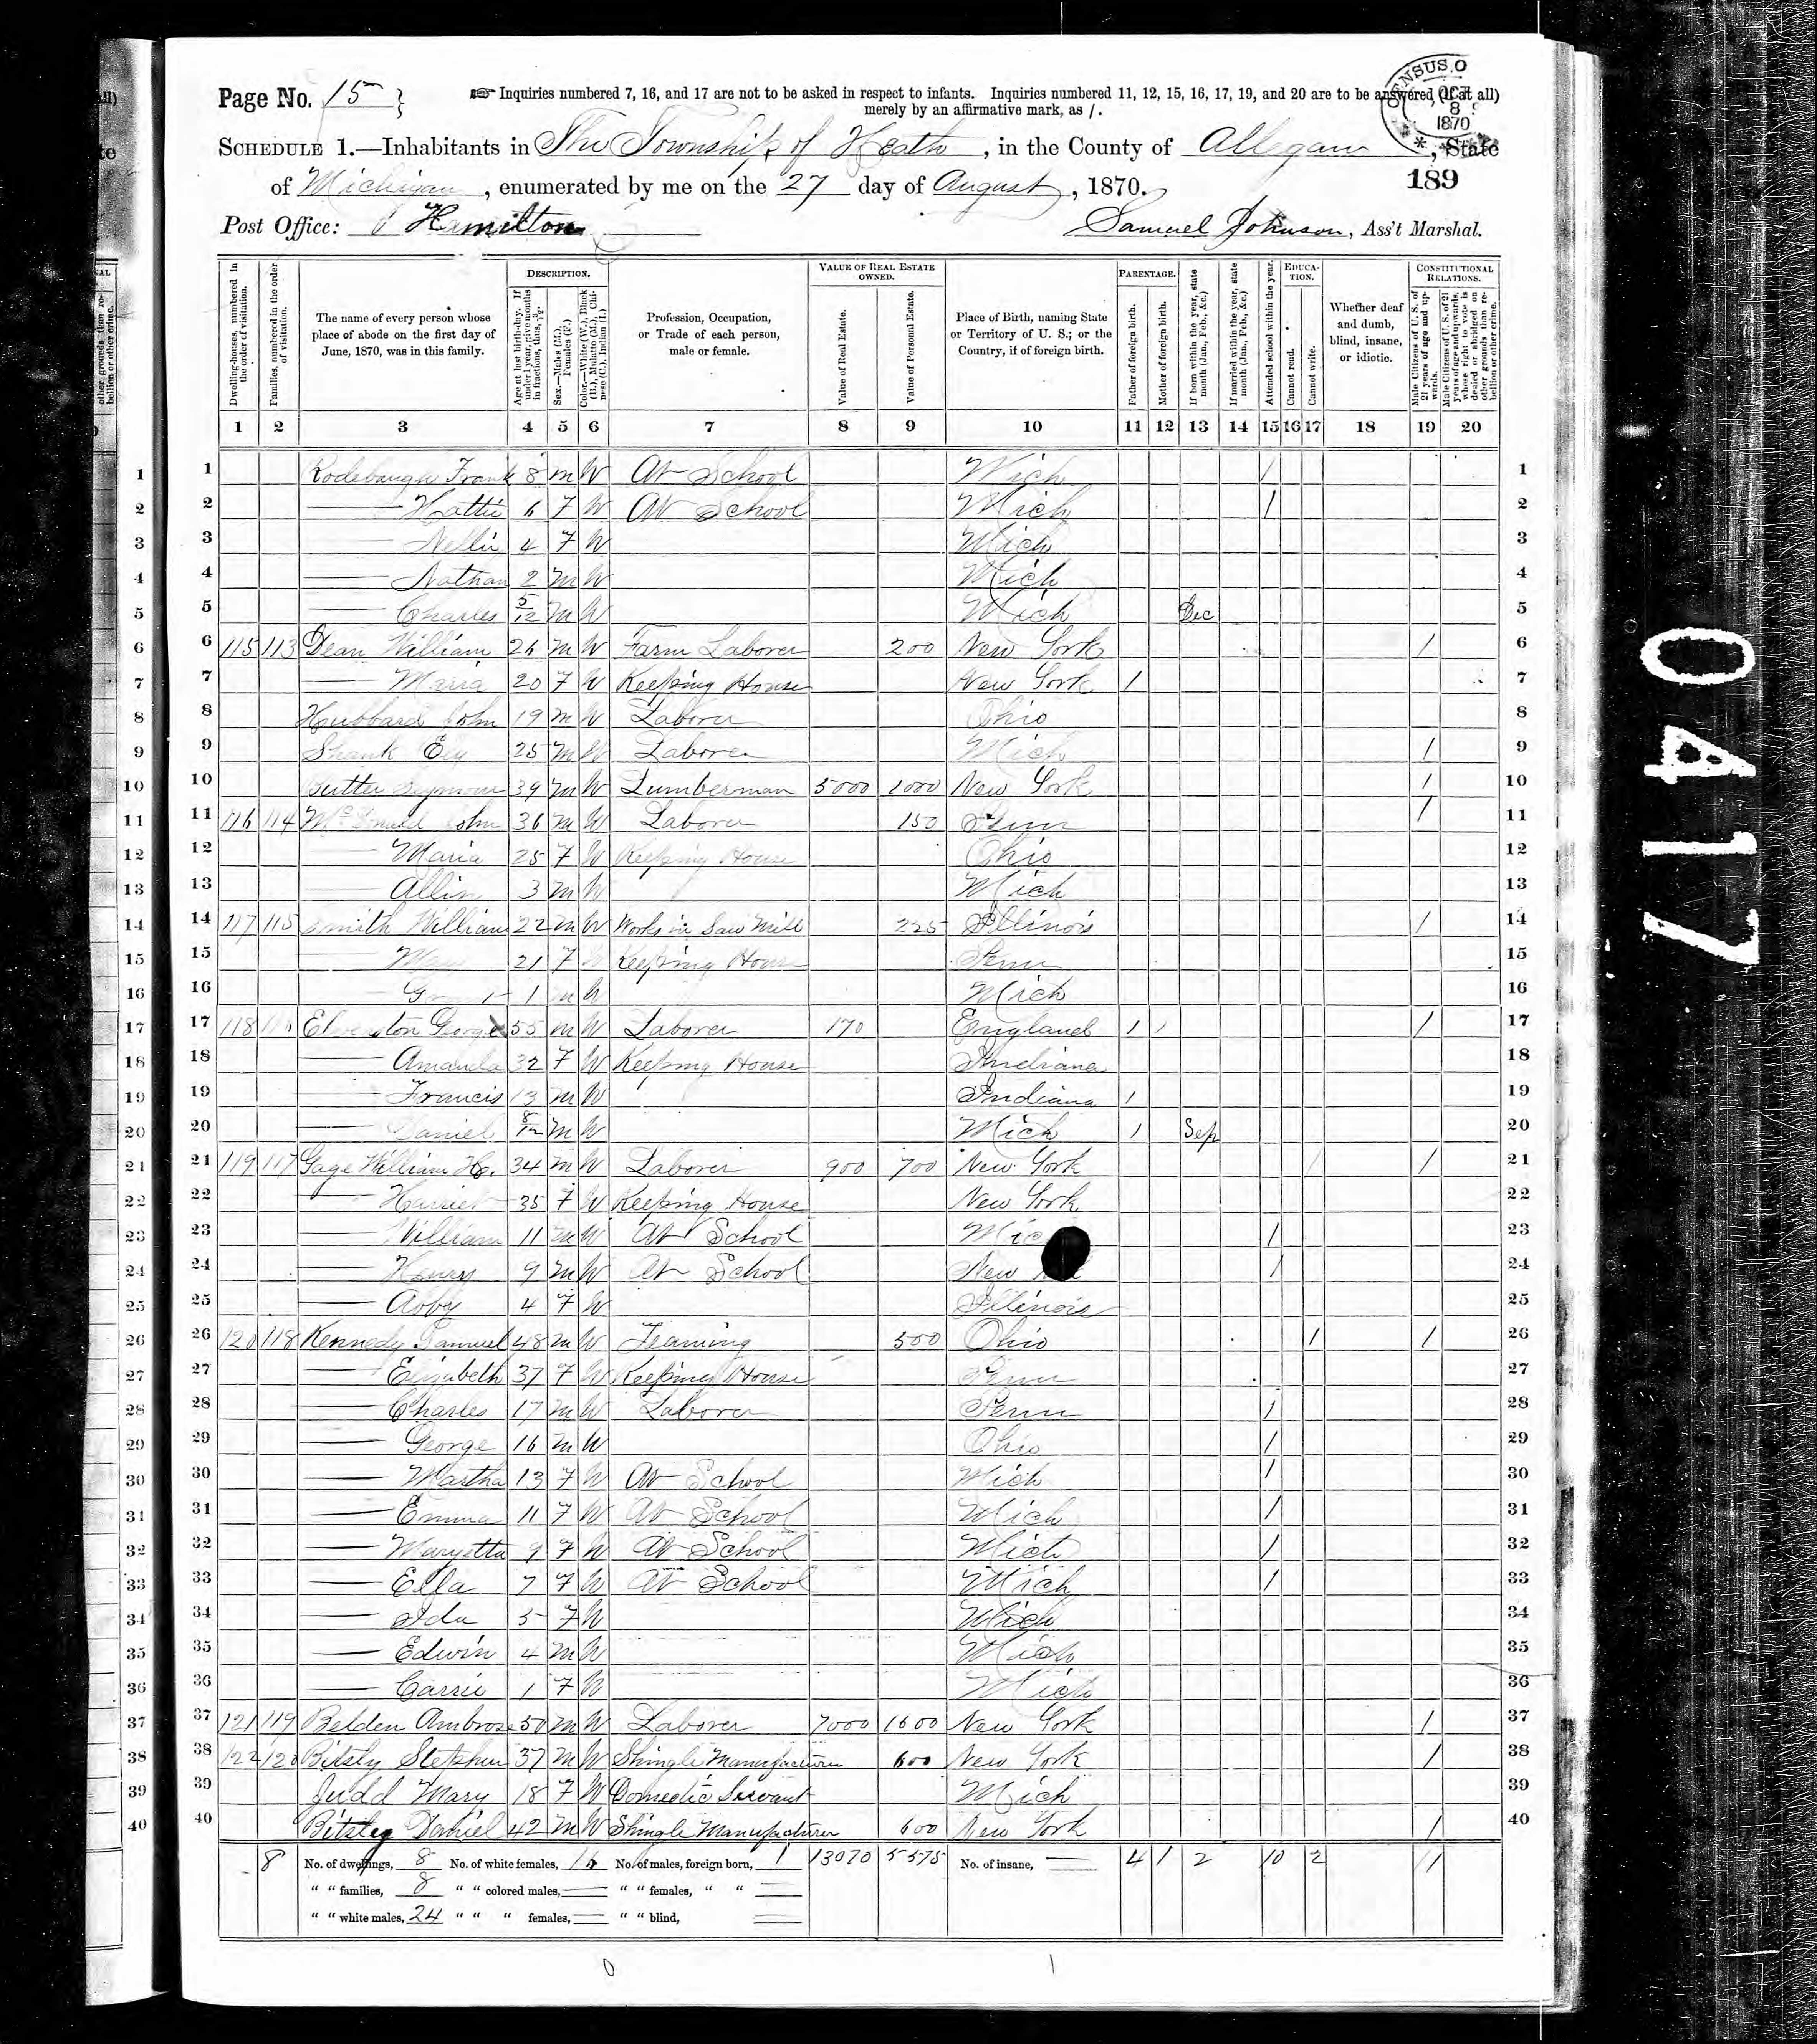 Page No. 15 }
☞ Inquiries numbered 7, 16, and 17 are not to be asked in respect to infants. Inquiries numbered 11, 12, 15, 16, 17, 19, and 20 are to be answered (if at all)
merely by an affirmative mark, as /.
CENSUS O
OCT
8
1870
SCHEDULE 1.—Inhabitants in The Township of Heath, in the County of Allegan, State
of Michigan, enumerated by me on the 27 day of August, 1870.
189
Post Office: Hamilton
Samuel Johnson, Ass't Marshal.
Dwelling-houses, numbered in the order of visitation.
Families, numbered in the order of visitation.
The name of every person whose place of abode on the first day of June, 1870, was in this family.
DESCRIPTION.
Age at last birth-day. If under 1 year, give months in fractions, thus, 3/12.
Sex.—Males (M.), Females (F.)
Color.—White (W.), Black (B.), Mulatto (M.), Chinese (C.), Indian (I.)
Profession, Occupation, or Trade of each person, male or female.
VALUE OF REAL ESTATE OWNED.
Value of Real Estate.
Value of Personal Estate.
Place of Birth, naming State or Territory of U. S.; or the Country, if of foreign birth.
PARENTAGE.
Father of foreign birth.
Mother of foreign birth.
If born within the year, state month (Jan., Feb., &c.)
If married within the year, state month (Jan., Feb., &c.)
Attended school within the year.
EDUCATION.
Cannot read.
Cannot write.
Whether deaf and dumb, blind, insane, or idiotic.
CONSTITUTIONAL RELATIONS.
Male Citizens of U. S. of 21 years of age and upwards.
Male Citizens of U. S. of 21 years of age and upwards, whose right to vote is denied or abridged on other grounds than rebellion or other crime.
1 2 3 4 5 6 7 8 9 10 11 12 13 14 15 16 17 18 19 20
1 Rodebaugh Frank 8 m W At School Mich / 1
2 — Hattie 6 F W At School Mich / 2
3 — Nellie 4 F W Mich 3
4 — Nathan 2 m W Mich 4
5 — Charles 5/12 m W Mich Dec 5
6 115 113 Dean William 26 m W Farm Laborer 200 New York / 6
7 — Maria 20 F W Keeping House New York / 7
8 Hubbard John 19 m W Laborer Ohio 8
9 Shank Ely 25 m W Laborer Mich / 9
10 39 m W Lumberman 5000 1000 New York / 10
11 116 114 John 36 m W Laborer 150 Penn / 11
12 — Maria 25 F W Keeping House Ohio 12
13 — Allin 3 m W Mich 13
14 117 115 Smith William 22 m W Works in Saw Mill 225 Illinois / 14
15 — Mary 21 F W Keeping House Penn 15
16 — 1 m W Mich 16
17 118 116 George 55 m W Laborer 170 England / / / 17
18 — Amanda 32 F W Keeping House Indiana 18
19 — Francis 13 m W Indiana / 19
20 — Daniel 8/12 m W Mich / Sep 20
21 119 117 Gage William H. 34 m W Laborer 900 700 New York / / 21
22 — Harriet 35 F W Keeping House New York 22
23 — William 11 m W At School Mic / 23
24 — Henry 9 m W At School New / 24
25 — Abby 4 F W Illinois 25
26 120 118 Kennedy Samuel 48 m W Teaming 500 Ohio / / 26
27 — Elizabeth 37 F W Keeping House Penn 27
28 — Charles 17 m W Laborer Penn / 28
29 — George 16 m W Ohio / 29
30 — Martha 13 F W At School Mich / 30
31 — Emma 11 F W At School Mich / 31
32 — Maryetta 9 F W At School Mich / 32
33 — Ella 7 F W At School Mich / 33
34 — Ida 5 F W Mich 34
35 — Edwin 4 m W Mich 35
36 — Carrie 1 F W Mich 36
37 121 119 Belden Ambrose 50 m W Laborer 7000 1600 New York / 37
38 122 120 Bitsly Stephen 37 m W Shingle Manufacturer 600 New York / 38
39 Judd Mary 18 F W Domestic Servant Mich 39
40 Bitsley Daniel 42 m W Shingle Manufacturer 600 New York / 40
8 No. of dwellings, 8 No. of white females, 16 No. of males, foreign born, 1 13070 5575 No. of insane, — 4 1 2 10 2 11
" " families, 8 " " colored males, — " " females, " " —
" " white males, 24 " " " females, — " " blind, —
0417